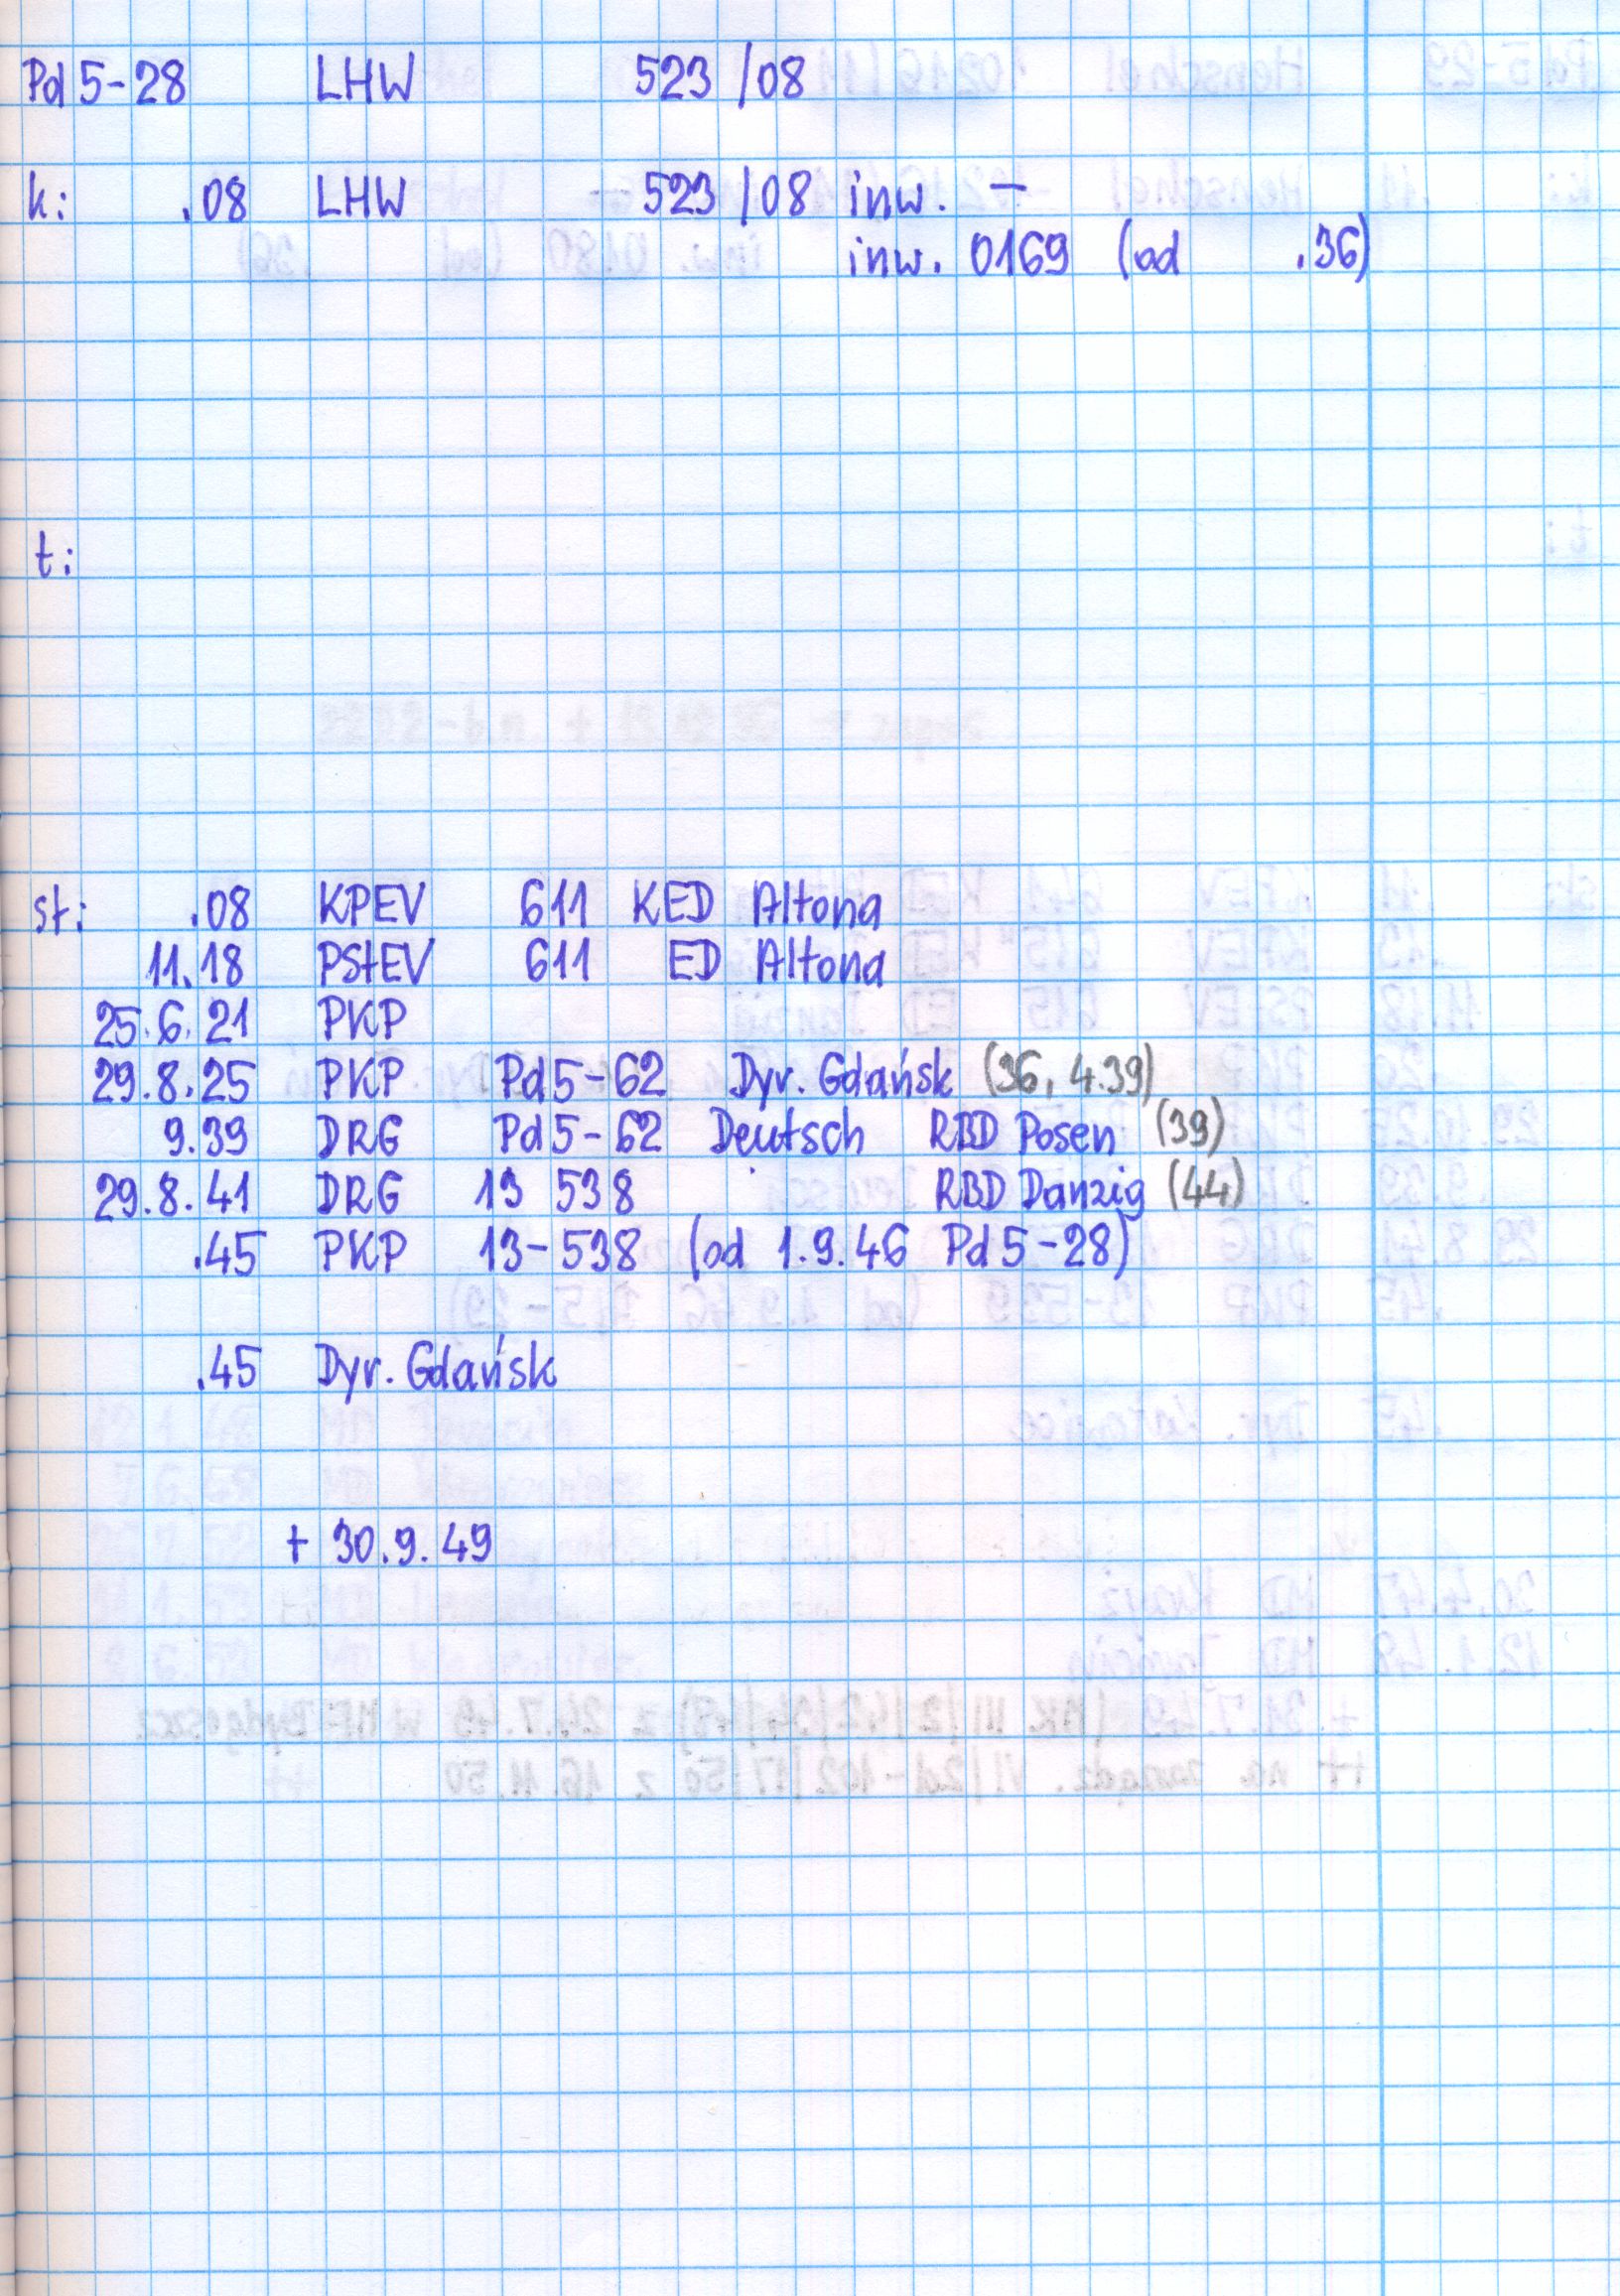 Pd 5-28 LHW 523 /08
k: .08 LHW 523 /08 inw. –
inw. 0169 (od .36)
t:
st: .08 KPEV 611 KED Altona
11.18 PStEV 611 ED Altona
25.6.21 PKP
29.8.25 PKP Pd 5-62 Dyr. Gdańsk (36, 4.39)
9.39 DRG Pd 5-62 Deutsch RBD Posen (39)
29.8.41 DRG 13 538 RBD Danzig (44)
.45 PKP 13-538 (od 1.9.46 Pd 5-28)
.45 Dyr. Gdańsk
+ 30.9.49